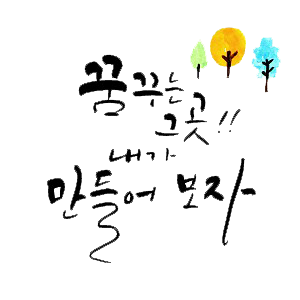 꿈꾸는
그곳!!
내가
만들어 보자